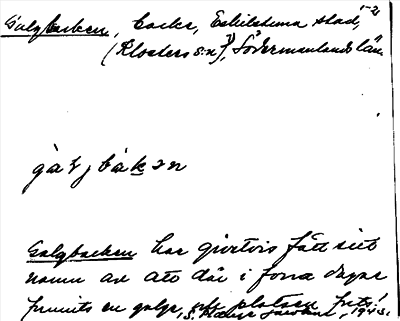 Galgbacken, backe, Eskilstuna stad, 1-2
(Klosters s:n), Södermanlands län.
Galgbacken har givetvis fått sitt
namn av att där i forna dagar
funnits en galge, och platsen
1943.